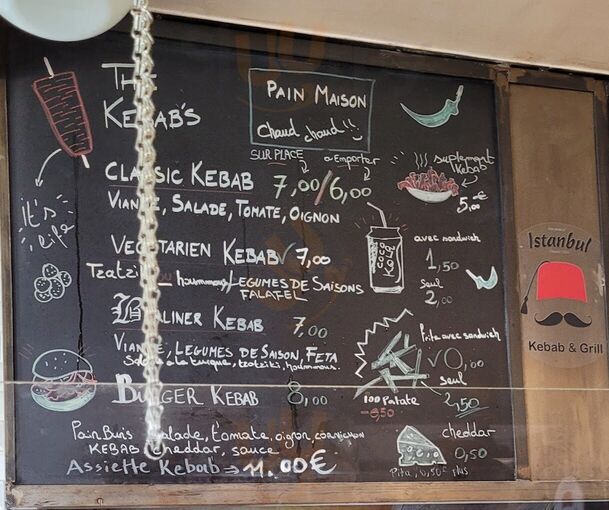 THE
KEBAB'S
PAIN MAISON
Chaud, chaud !!
SUR PLACE
a Emporter
CLASSIC KEBAB 7,00/6,00
VIANDE, SALADE, TOMATE, OIGNON
suplement
Kebab
5,00€
It's
life
VEGETARIEN KEBAB 7,00
Tzatziki hoummous/LEGUMES DE SAISONS
FALAFEL
COCA
KOLA
avec sandwich
1,50
seul
2,00
BERLINER KEBAB 7,00
VIANDE, LEGUMES DE SAISON, FETA
Salade a la turque, tzatziki, hoummous.
Frite avec sandwich
0,00
seul
2,50
100 Patate
-3,50
BURGER KEBAB 8,00
Pain Bun's Salade, tomate, oignon, cornichon
KEBAB cheddar, sauce
Assiette Kebab → 11.00€
cheddar
0,50
Pita, 0,50€ plus
Istanbul
Kebab & Grill